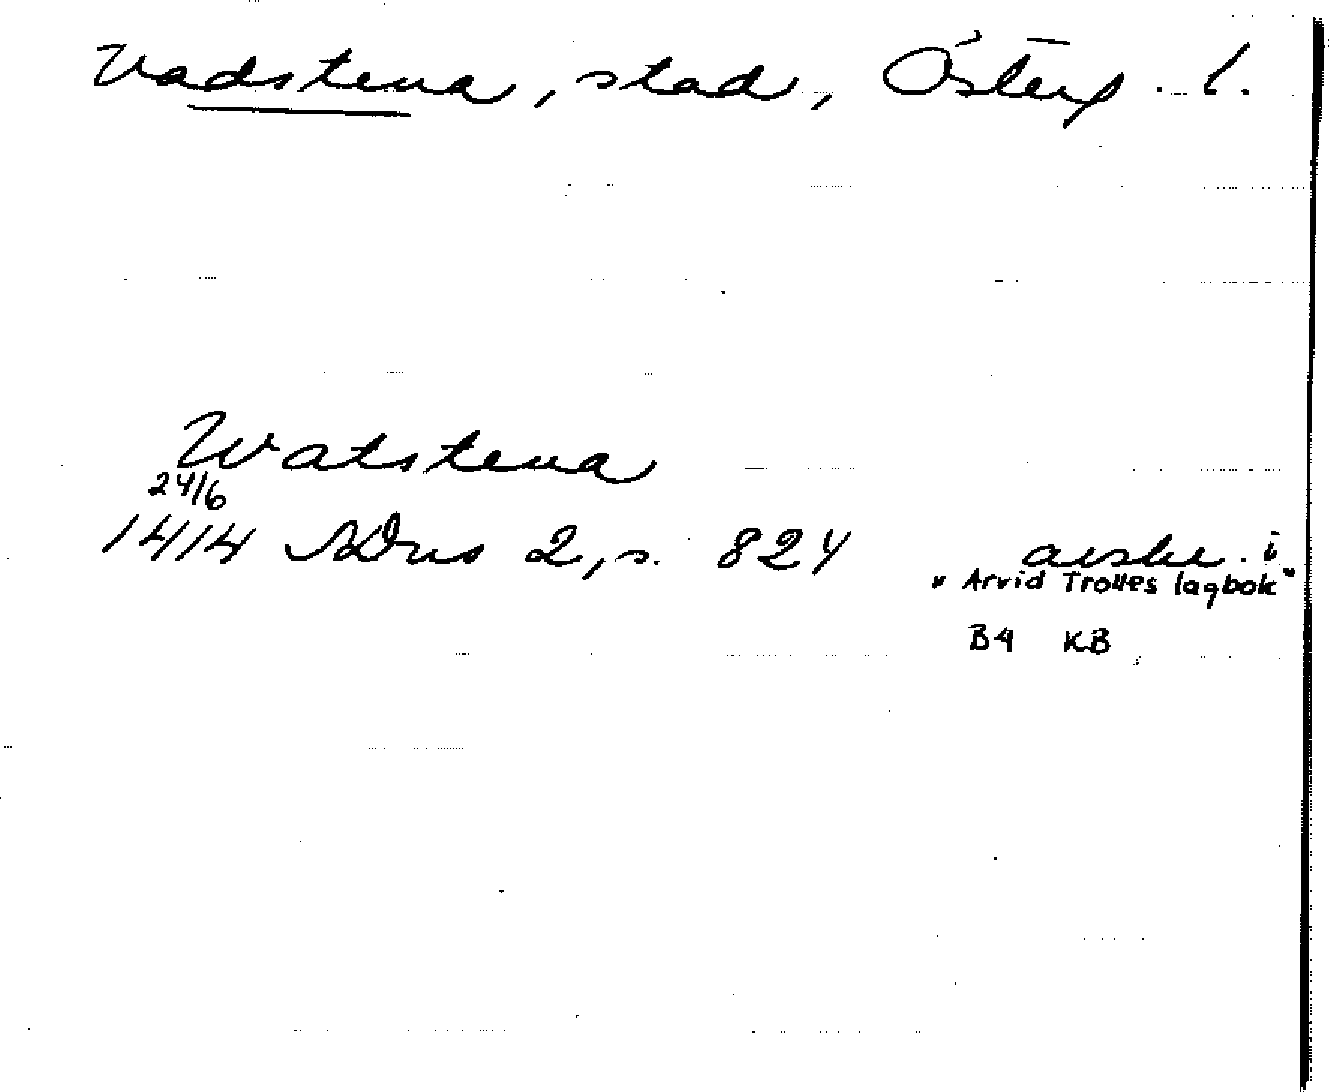 Vadstena, stad, Österg. l.
Watstena
24/6
1414 SDns 2, s. 824 avskr. i
"Arvid Trolles lagbok"
B4 KB